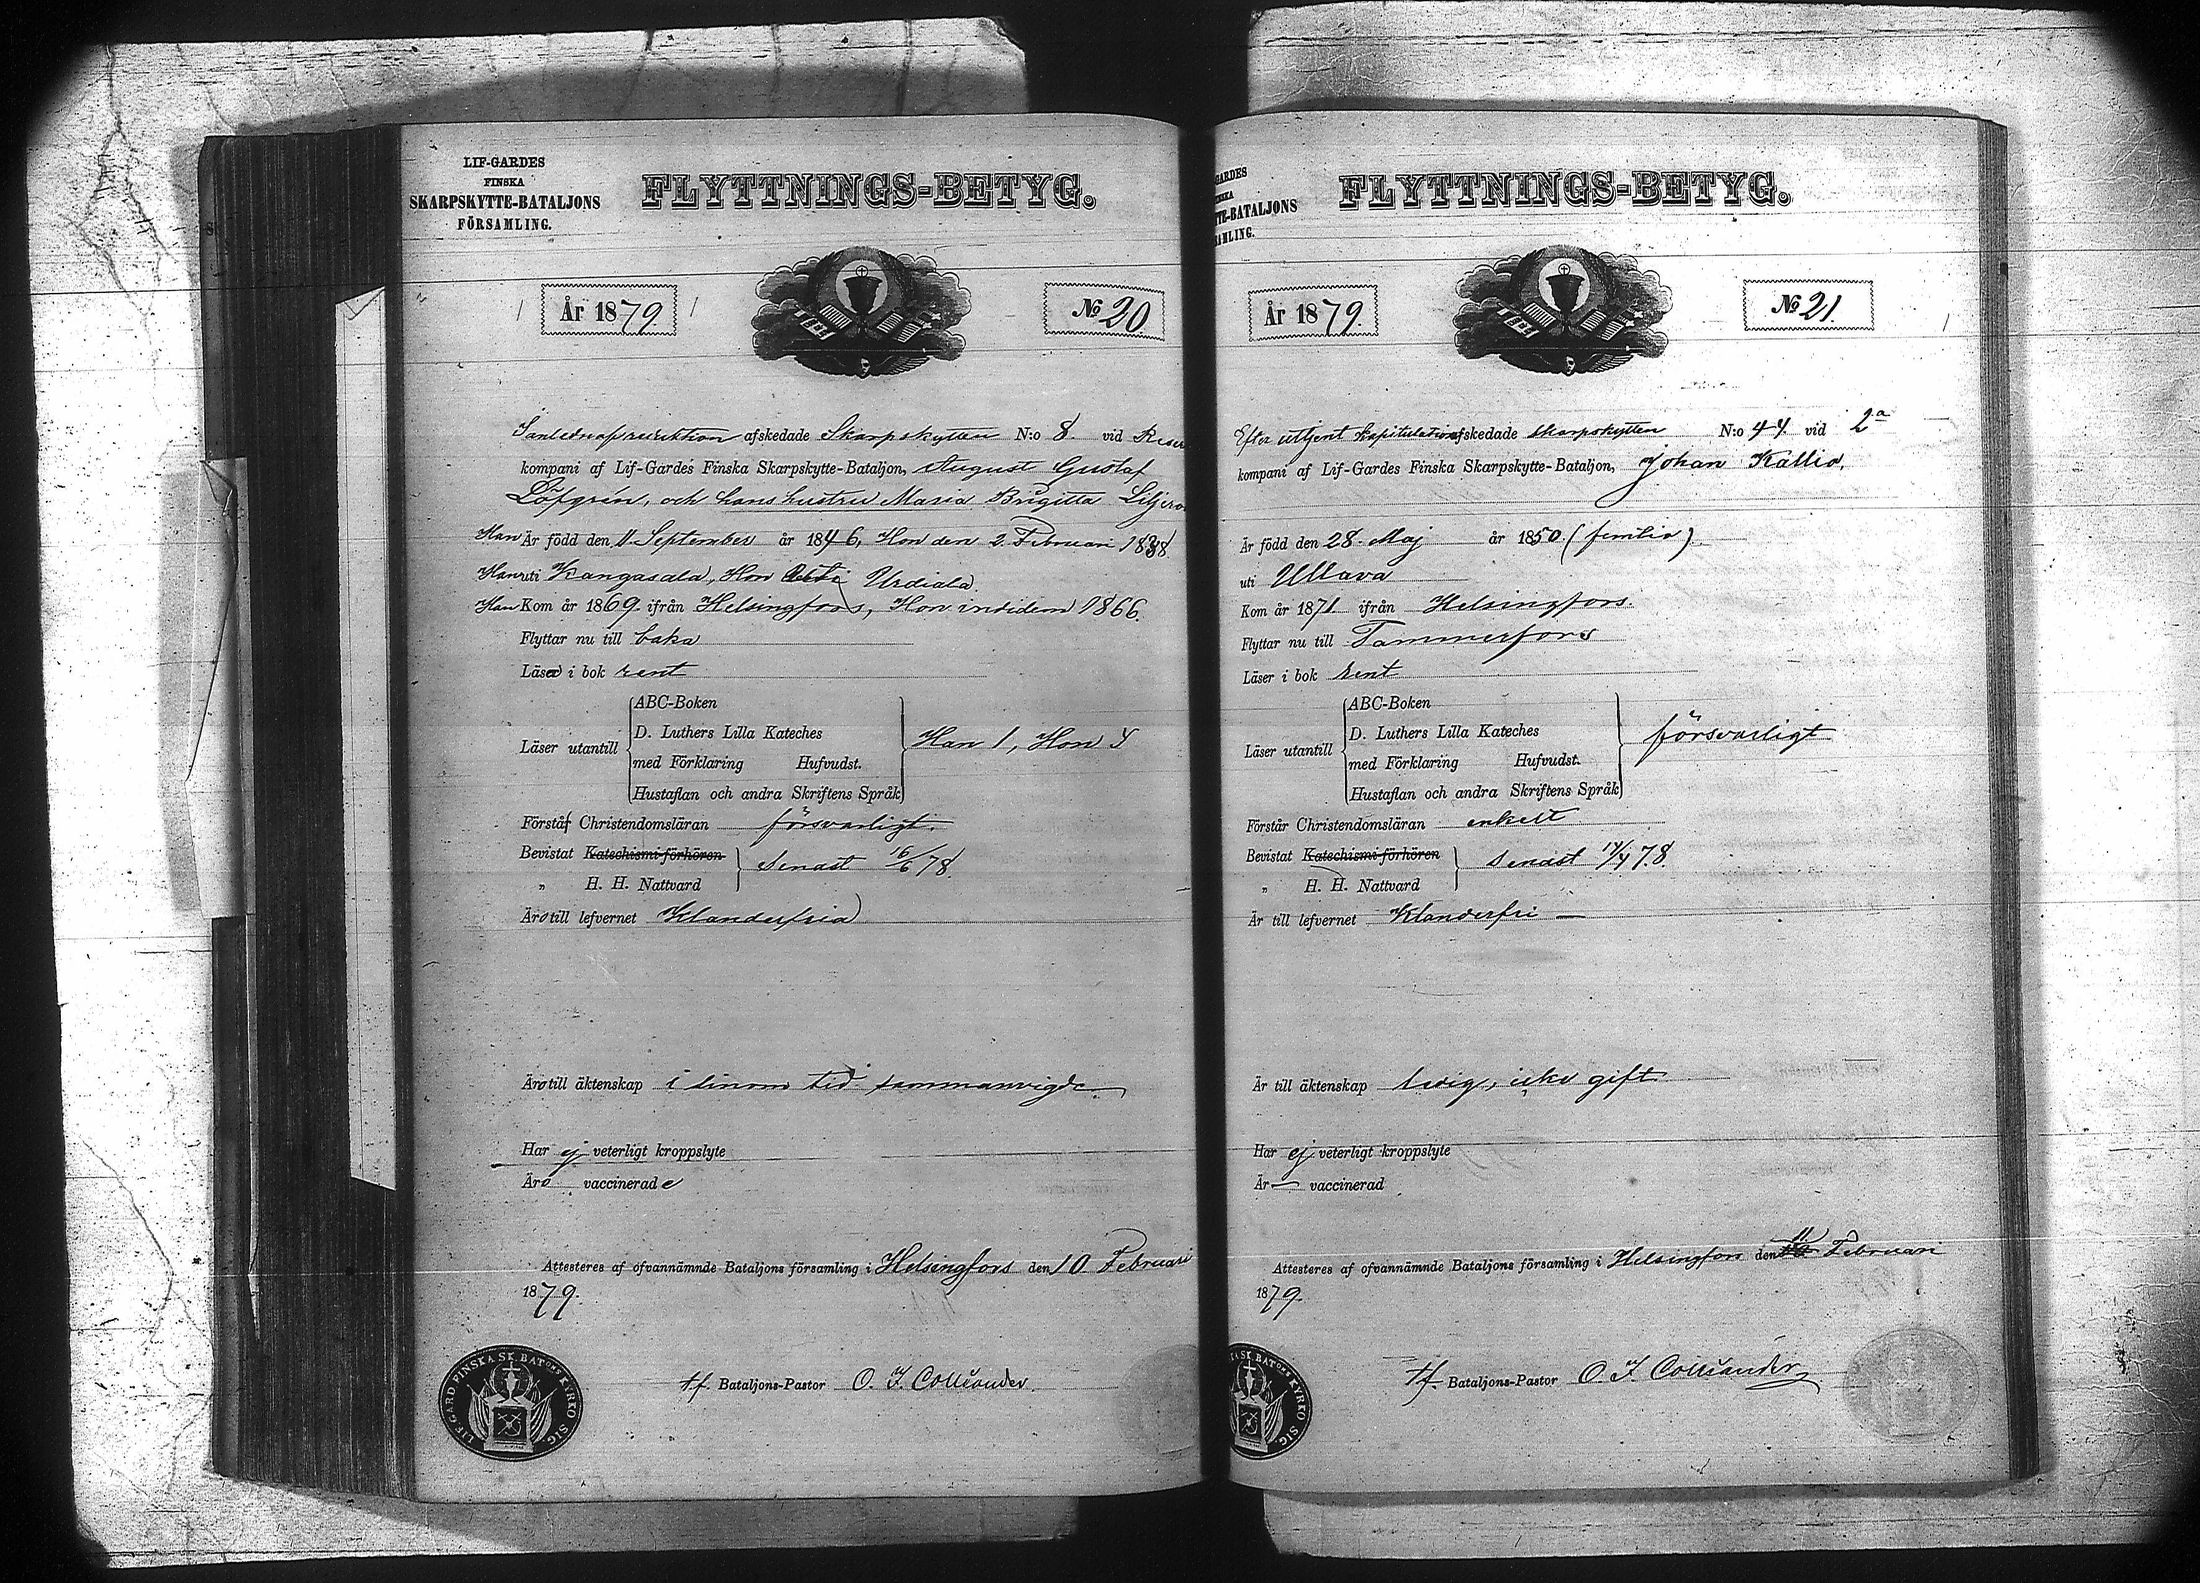 LIF-GARDES
FINSKA
SKARPSKYTTE-BATALJONS
FÖRSAMLING.
FLYTTNINGS-BETYG.
År 1879.
№ 20.
afskedade Skarpskytten N:o 8. vid
kompani af Lif-Gardes Finska Skarpskytte-Bataljon, August Gustaf
Löfgrén, och hans hustru Maria Brigitta
Han Är född den 11. September år 1846, Hon den 2. Februari 1838
Han uti Kangasala, Hon uti Urdiala.
Han Kom år 1869. ifrån Helsingfors, Hon indidem 1866.
Flyttar nu till baka
Läsa i bok rent
Läser utantill
ABC-Boken
D. Luthers Lilla Kateches
med Förklaring Hufvudst.
Hustaflan och andra Skriftens Språk
Han 1, Hon
Förstå Christendomsläran försvarligt.
Bevistat Katechismi-förhören
„ H. H. Nattvard
senast 16/6 78.
Äro till lefvernet Klanderfria
Äro till äktenskap i sinom tid sammanvigde.
Har ej veterligt kroppslyte
Äro vaccinerade
Attesteres af ofvannämnde Bataljons församling i Helsingfors den 10. Februari
1879.
LIF. GARD. FINSKA SK. BAT:ONS KYRKO SIG
t.f. Bataljons-Pastor O. F. Colliander.
GARDES
TE-BATALJONS
AMLING.
FLYTTNINGS-BETYG.
År 1879.
№ 21.
Efter uttjent Kapitulation afskedade skarpskytten N:o 44 vid 2a
kompani af Lif-Gardes Finska Skarpskytte-Bataljon, Johan Kallio,
Är född den 28. Maj år 1850 (femtio).
uti Ullava
Kom år 1871 ifrån Helsingfors.
Flyttar nu till Tammerfors
Läser i bok rent
Läser utantill
ABC-Boken
D. Luthers Lilla Kateches
med Förklaring Hufvudst.
Hustaflan och andra Skriftens Språk
försvarligt
Förstår Christendomsläran enkelt
Bevistat Katechismi-förhören
„ H. H. Nattvard
senast 78.
Är till lefvernet Klanderfri —
Är till äktenskap ledig, icke gift
Har ej veterligt kroppslyte
Är — vaccinerad
Attesteres af ofvannämnde Bataljons församling i Helsingfors den 11 Februari
1879.
SK. BAT:ONS KYRKO SIG
t.f. Bataljons-Pastor O. F. Colliander